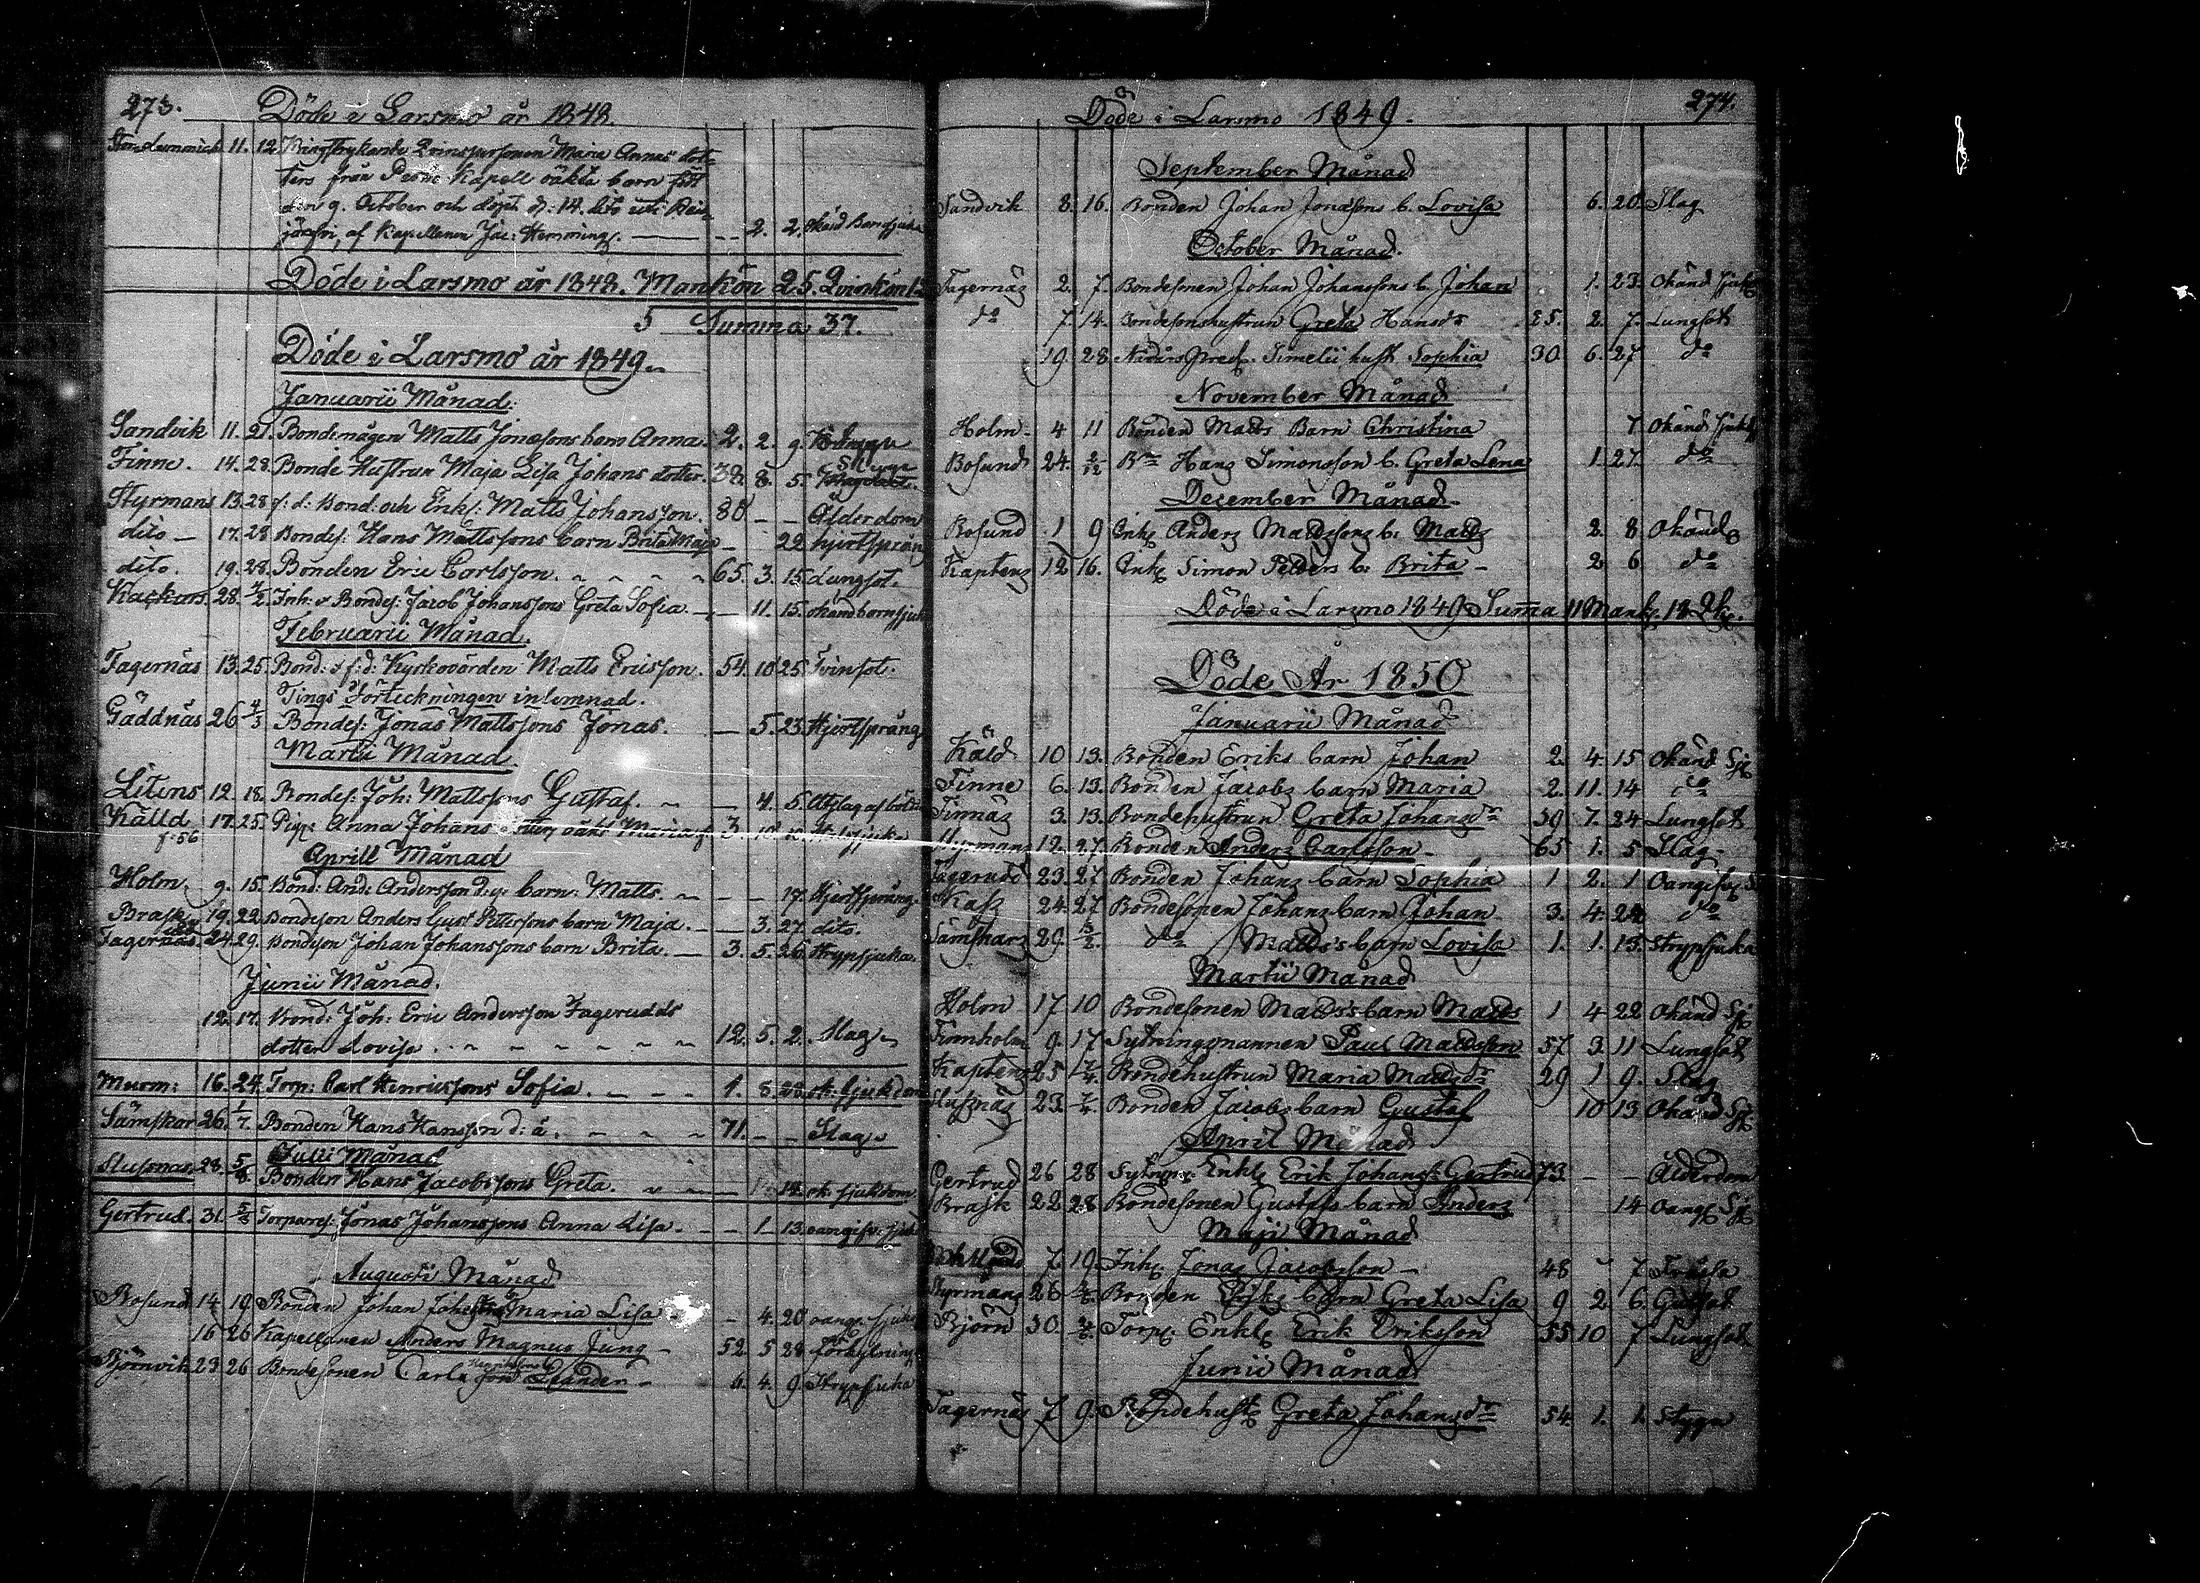 273. Döde i Larsmo år 1848.
11. 12. Kringstrykande Qvinspersonen Maria Annas dot-
ters från Kapell oäkta barn född
den 9. October och döpt d: 14. dito uti
af Kapellanen Jac: Hemming. — 2. 2. okänd Barnsjuka
Döde i Larsmo år 1848. Mankön 25. Qvinkön 12
Summa 37.
Döde i Larsmo år 1849.
Januarii Månad.
Sandvik 11. 21. Bondemågen Matts Jonassons barn Anna. 2. 2. 9.
Finne. 14. 28. Bonde Hustrun Maja Lisa Johans dotter. 38. 8. 5.
Styrmans 13. 28. f: d: Bond: och Enkl: Matts Johansson. 80 — — Ålderdom
dito — 17. 28. Bondes: Hans Mattssons barn Brita Maja — 22. hjertsprång
dito. 19. 28. Bonden Eric Carlsson. 65. 3. 15. Lungsot.
Kackurs. 28. 4/2. Inh: & Bondes: Jacob Johanssons Greta Sofia. — 11. 15. okänd barnsjuk
Februarii Månad.
Fagernäs 13. 25. Bond: & f: d: Kyrkovärden Matts Ericsson. 54. 10. 25. Tvinsot.
Tings Förteckningen inlemnad.
Gäddnäs 26 4/3 Bondes: Jonas Mattssons Jonas. — 5. 23. Hjertsprång
Martii Månad
Litens 12. 18. Bondes: Joh: Mattssons Gustaf. — 4. 5. Utslag af
Källd 17. 25. Pig: Anna Johans dotters oäkt Maria 3. 10.
f. 56
Aprill Månad
Holm. 9. 15. Bond: And: Andersson d: y: barn: Matts. — — 17. Hjertsprång.
Brask 19. 22. Bondeson Anders Gust Pettersons barn Maja. — 3. 27. dito.
Fagernäs 24. 29. Bondeson Johan Johanssons barn Brita. — 3. 5. 26. Strypsjuka.
Junii Månad.
12. 17. Bond: Joh: Eric Andersson Fagerudds
dotter Lovisa. 12. 5. 2. Slag
Murm: 16. 24. Torp: Carl Henricssons Sofia. 1. 8. 28. ok: sjukdom
Sämskar 26. 1/7. Bonden Hans Hansson d: ä. 71. — — Slag
Julii Månad
Slusnäs. 28. 5/8. Bonden Hans Jacobssons Greta. — 14. ok. sjukdom
Gertrud. 31. 5/8. Torpares: Jonas Johanssons Anna Lisa. — 1. 13. oangifv: sjuk
Augusti Månad
Bosund 14 19. Bonden Johan Maria Lisa — 4. 20 oangi. sjuk
16 26 Kapellanen Anders Magnus Jung — 52. 5 28 förkylning
Björnvik 23 26 Bondesonen Carl Leander — 6. 4. 9. Strypsjuka
Döde i Larsmo 1849. 274.
September Månad
Sandvik 8. 16. Bonden Johan Jonassons b. Lovisa 6. 20. Slag
October Månad.
Fagernäs 2. 7. Bondesonen Johan Johanssons b. Johan 1. 23. Okänd sjuk
do 7. 14. Bondesonshustrun Greta Hansdr 25. 2. 7. Lungsot
19. 28 Simelii hust Sophia 30 6. 27 do
November Månad
Holm 4 11 Bonden Matts Barn Christina 7. Okänd sjuk
Bosund 24. 2/12 Bn Hans Simonsson b. Greta Lena 1. 27. do
December Månad
Bosund 1 9 Inh Anders Mattssons b. Matts 2. 8 Okänd
Kaptens 12 16. Inh Simon Petters b. Brita — 2 6 do
Döde i Larsmo 1849 Summa 11 Mank. 18 Qk.
Döde År 1850
Januarii Månad
Käld 10 13. Bonden Eriks barn Johan 2. 4. 15 Okänd Sj
Finne 6. 13. Bonden Jacobs barn Maria 2. 11. 14 do
Finnäs 3. 13. Bondehustrun Greta Johansdr 30 7. 24 Lungsot
Styrmans 12. 27. Bonden Anders Carlsson — 65 1. 5 Slag
Fagerudd 23. 27 Bonden Johans barn Sophia 1 2. 1 Oangifv
Kass 24. 27 Bondesonen Johans barn Johan 3. 4. 22 do
Sämskars 29. 3/2. do Matts's barn Lovisa 1. 1. 13. Strypsjuka
Martii Månad
Holm 17 10 Bondesonen Matts's barn Matts 1 4 22 Okänd Sj
Finnholm 9. 17 Sytningsmannen Paul Mattsson 57 3. 11 Lungsot
Kaptens 25 7/4 Bondehustrun Maria Mattsdr 29 1 9. Slag
Slusnäs 23. 7/4 Bonden Jacobs barn Gustaf 10 13 Okänd Sj
April Månad
Gertrud 26 28 Sytnm. Enkl Erik Johanss. Gertrud 73. — — Ålderdom
Brask 22 28 Bondesonen Gustafs barn Anders 14 Oangf Sj
Maji Månad
7. 19. Inh Jonas Jacobsson — 48 – 7. Fråssa
Styrmans 26 Bonden Eriks barn Greta Lisa 9 2 6. Gulsot
Björn 30. Torp. Enkl Erik Eriksson 55 10 7 Lungsot
Junii Månad
Fagernäs 7 9. Bondehust Greta Johansdr 54 1. 1. Stygn